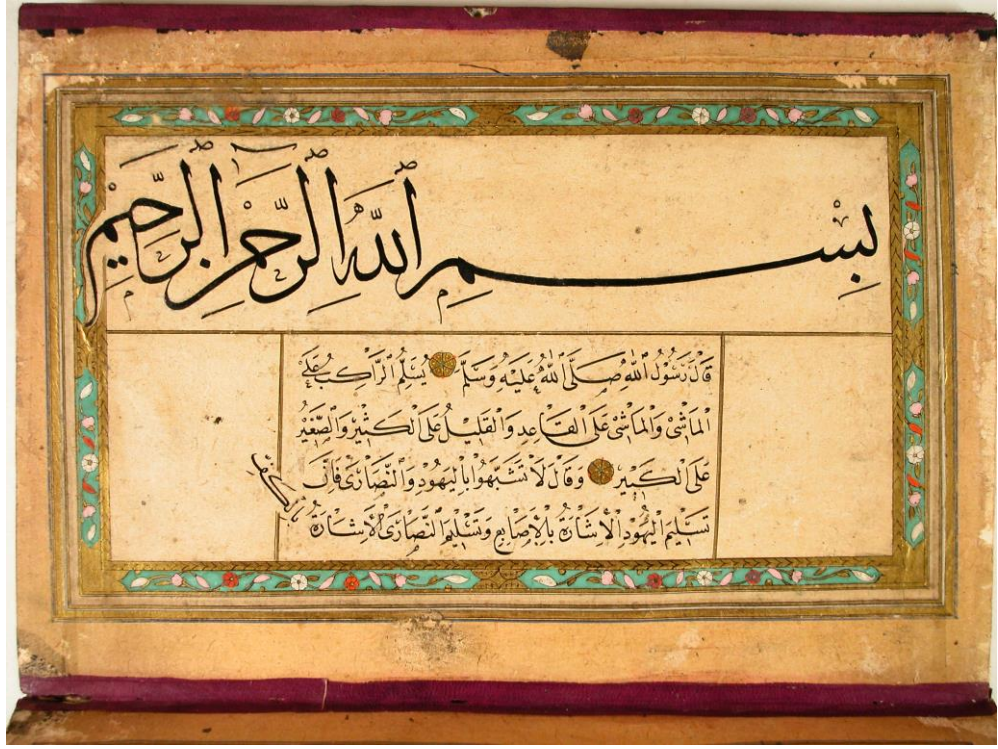 بِسْمِ ٱللَّهِ ٱلرَّحْمٰنِ ٱلرَّحِيْمِ
قَالَ رَسُوْلُ ٱللّٰهِ صَلَّى ٱللّٰهُ عَلَيْهِ وَسَلَّمَ يُسَلِّمُ ٱلرَّاكِبُ عَلَى
ٱلْمَاشِىْ وَٱلْمَاشِىْ عَلَى ٱلْقَاعِدِ وَٱلْقَلِيْلُ عَلَى ٱلْكَثِيْرِ وَٱلصَّغِيْرُ
عَلَى ٱلْكَبِيْرِ وَقَالَ لَا تَشَبَّهُوْا بِالْيَهُوْدِ وَٱلنَّصَارَى فَاِنَّ
تَسْلِيْمَ ٱلْيَهُوْدِ ٱلْاِشَارَةُ بِالْاَصَابِعِ وَتَسْلِيْمَ ٱلنَّصَارَى ٱلْاِشَارَةُ
بِالْكَفِّ